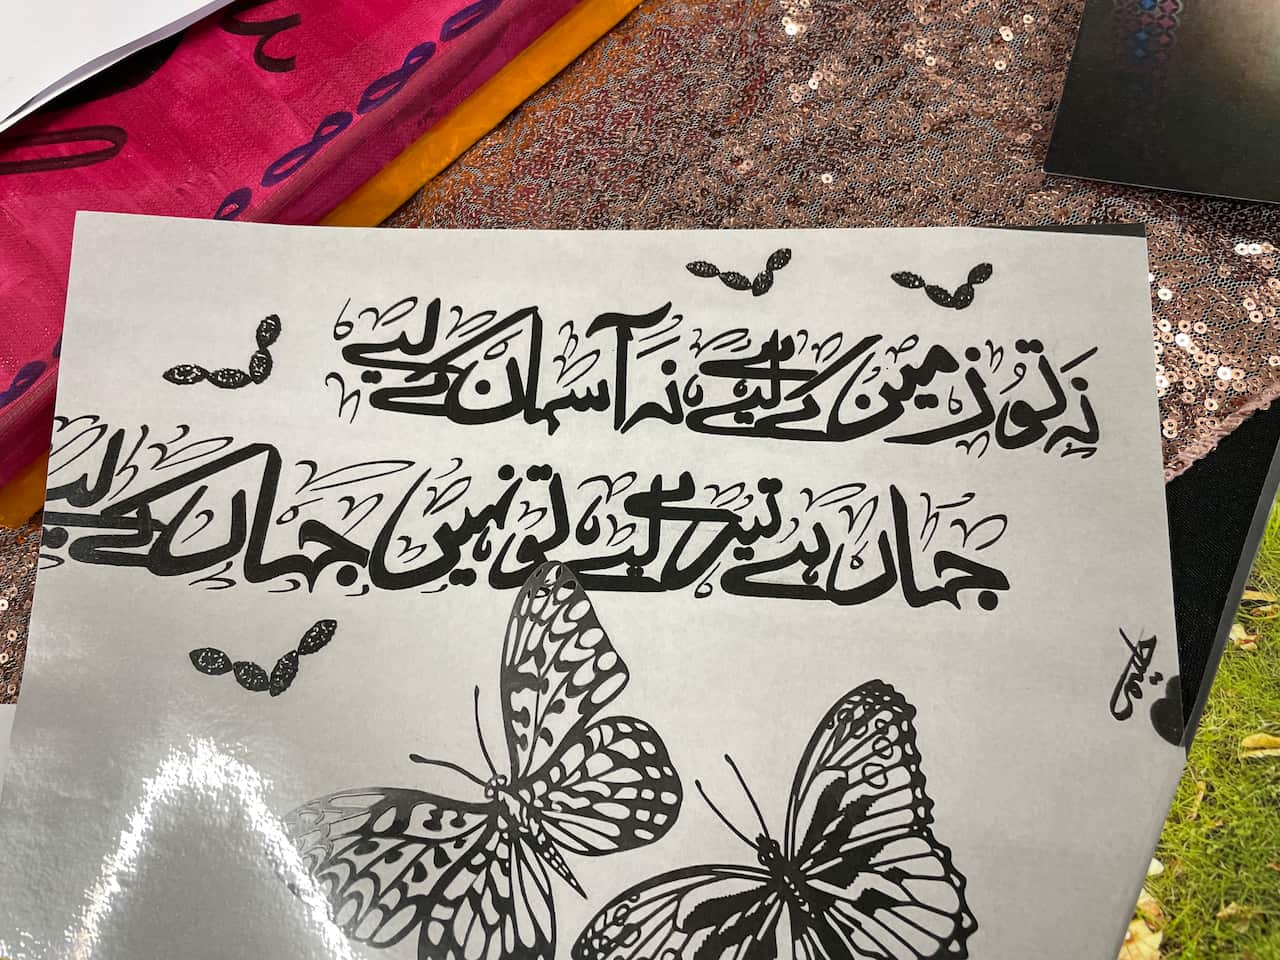 نہ تو زمیں کے لیے ہے نہ آسماں کے لیے
جہاں ہے تیرے لیے تو نہیں جہاں کے لیے